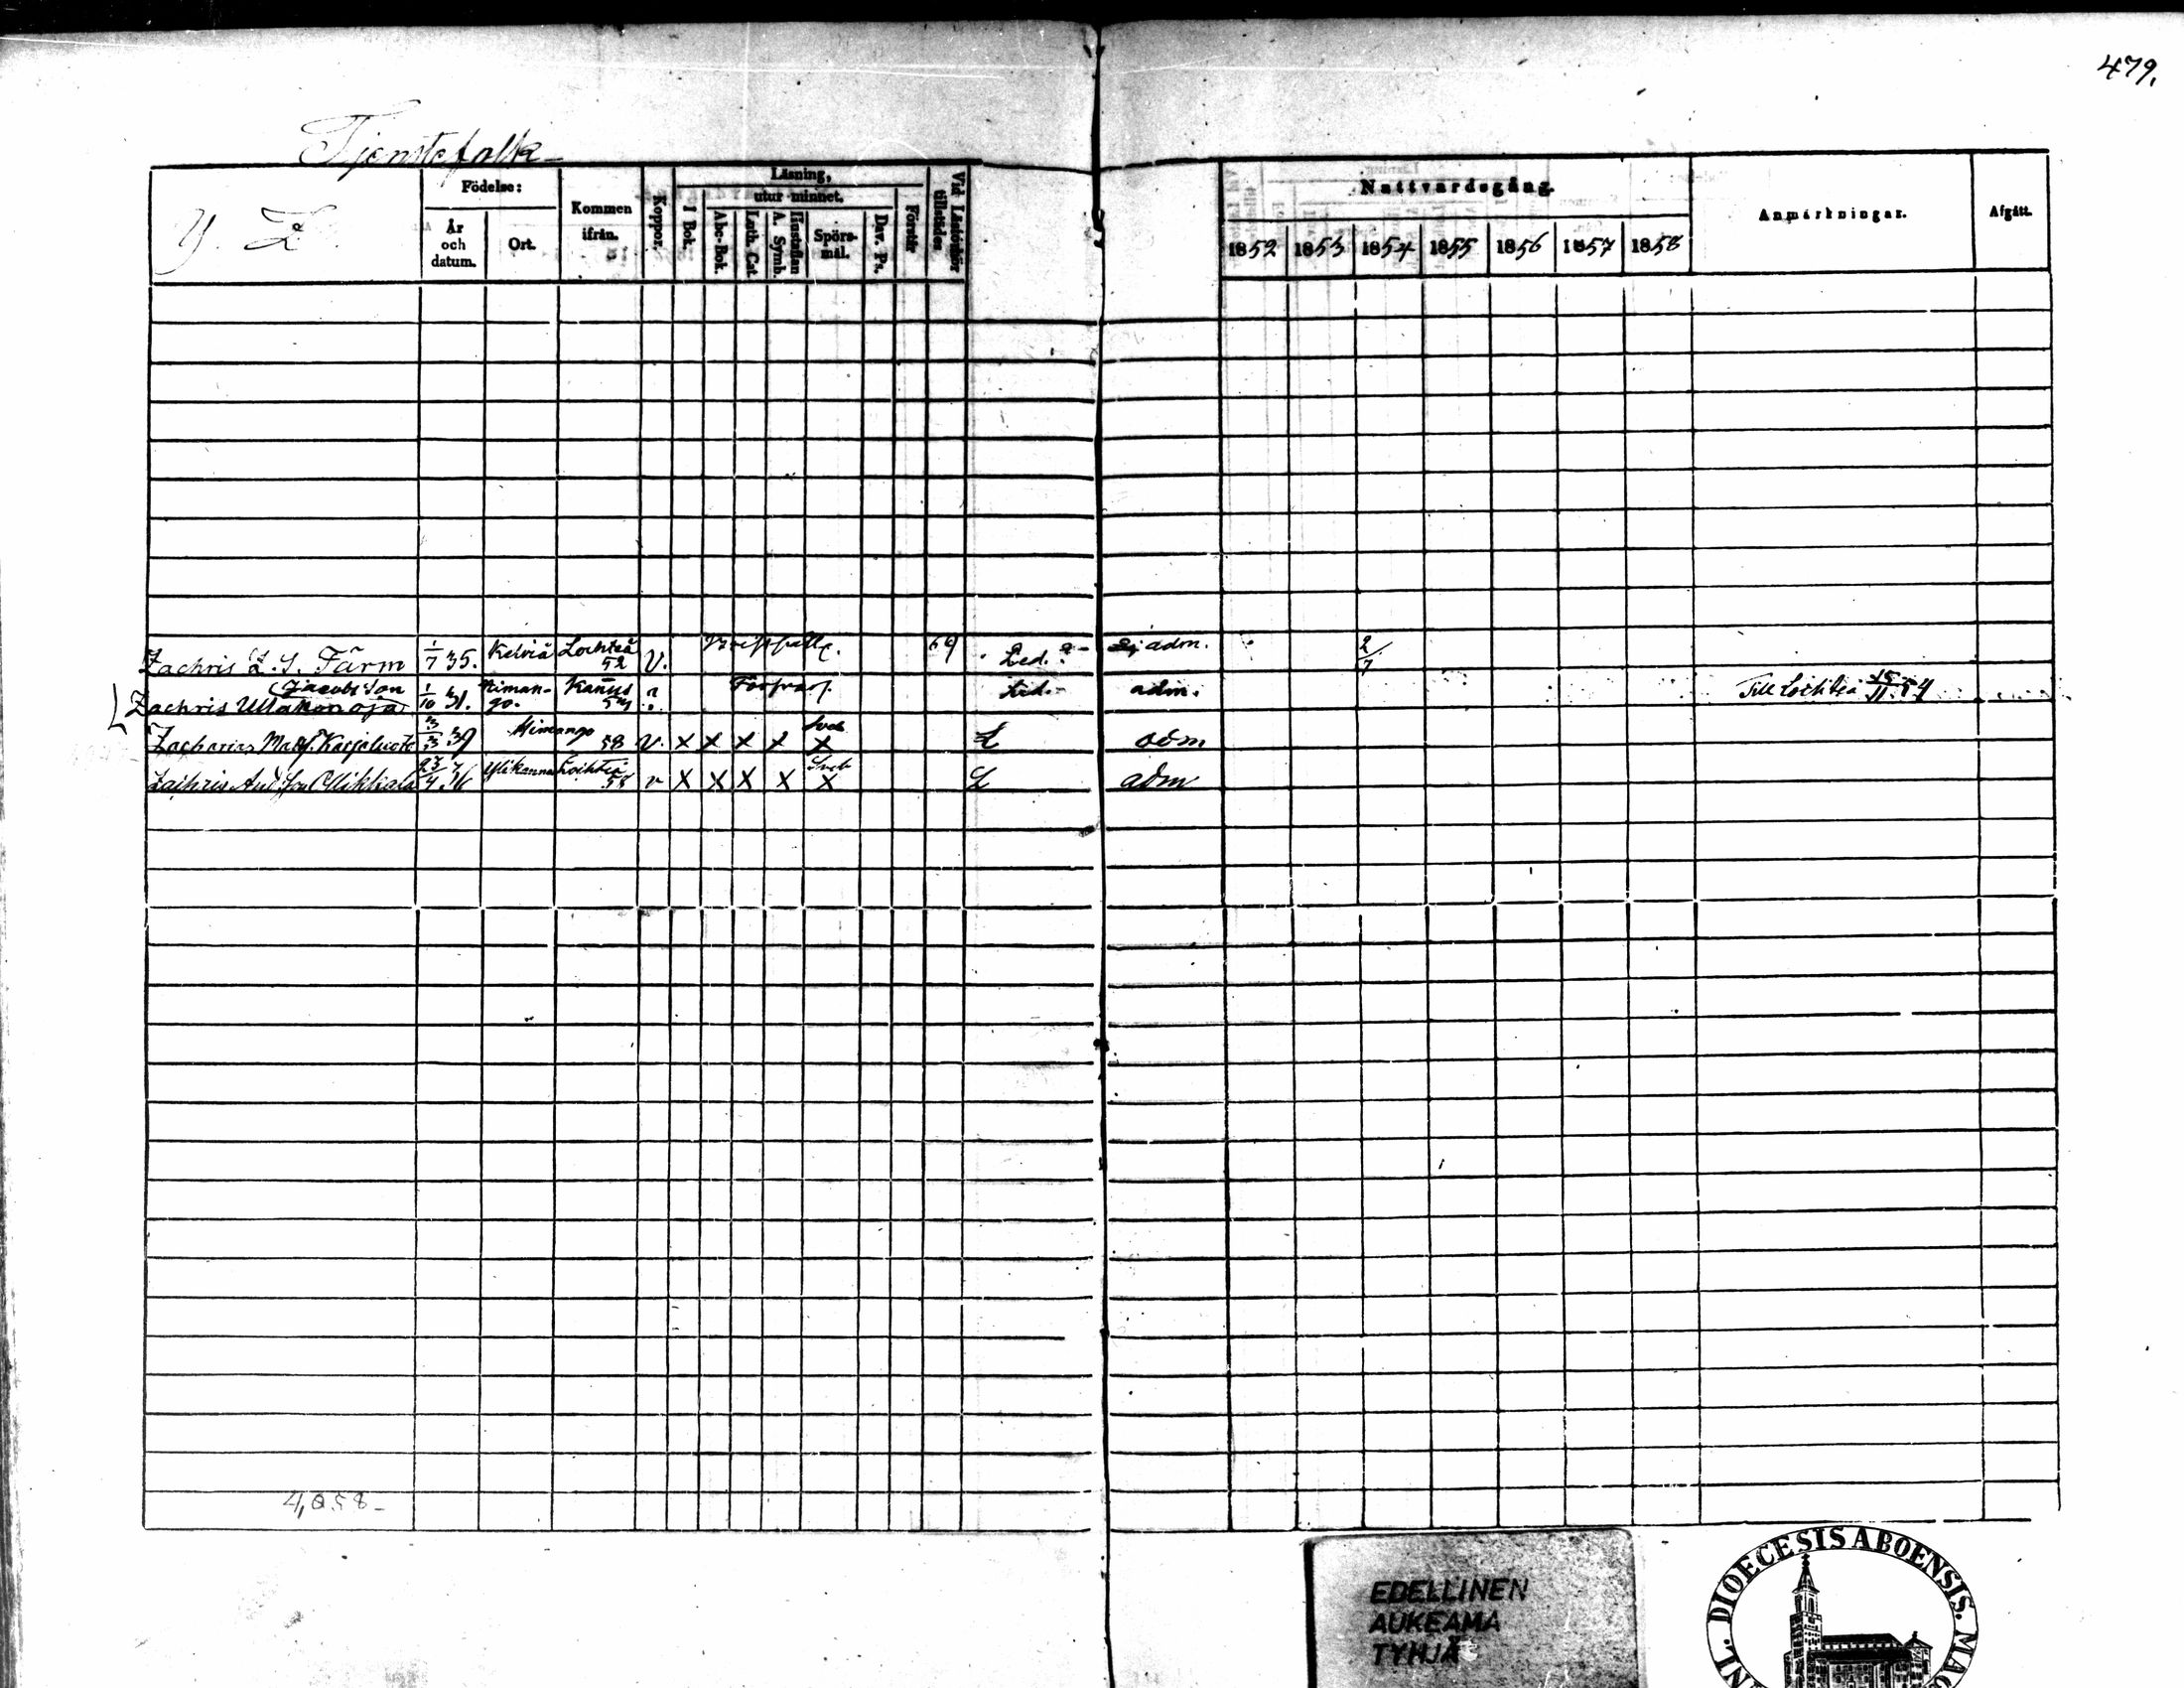 479.
Tjenstefolk
Y. Z.
Födelse:
År och datum.
Ort.
Kommen ifrån.
Koppor.
Läsning,
utur minnet.
I Bok.
Abc-Bok.
Luth. Cat.
A. Symb. Hustaflan
Spörs-mål.
Dav. Ps.
Förstår
Vid Läsförhör tillstädes
Nattvardsgång.
1852 1853 1854 1855 1856 1857 1858
Anmärkningar.
Afgått.
Zachris Z. S. Färm 1/7 35. Kelviä Lochteå 52 V. Led. Ej adm. 2/7
Jacobsson
Zachris Ullakonoja 1/10 31. Himan-go. Kanus adm. Till Lochteå 15/11 54
Zacharias Karjaluoto 39 Himango 58 V. X X X X X adm
Zachris Ollikkala 36 Ylikannus Lochteå 58 v X X X X X adm
4,058-
EDELLINEN
AUKEAMA
TYHJÄ
DIOECESIS ABOENSIS.